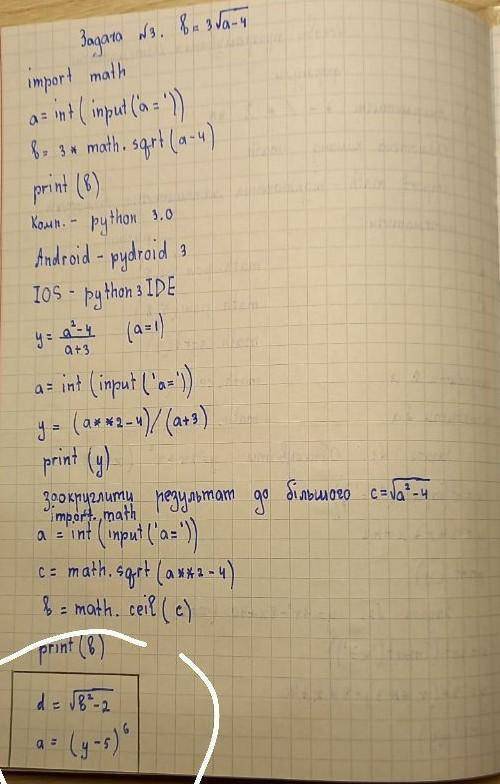 Задача №3. b = 3√a-4
import math
a = int ( input ('a = '))
b = 3 * math. sqrt (a-4)
print (b)
Комп. - python 3.0
Android - pydroid 3
IOS - python 3 IDE
y = a²-4 / a+3 (a=1)
a = int (input ('a = '))
y = (a**2-4)/(a+3)
print (y)
заокруглити результат до більшого c = √a²-4
import math
a = int (input ('a = '))
c = math. sqrt (a**2-4)
b = math. ceil (c)
print (b)
d = √b²-2
a = (y-5)⁶